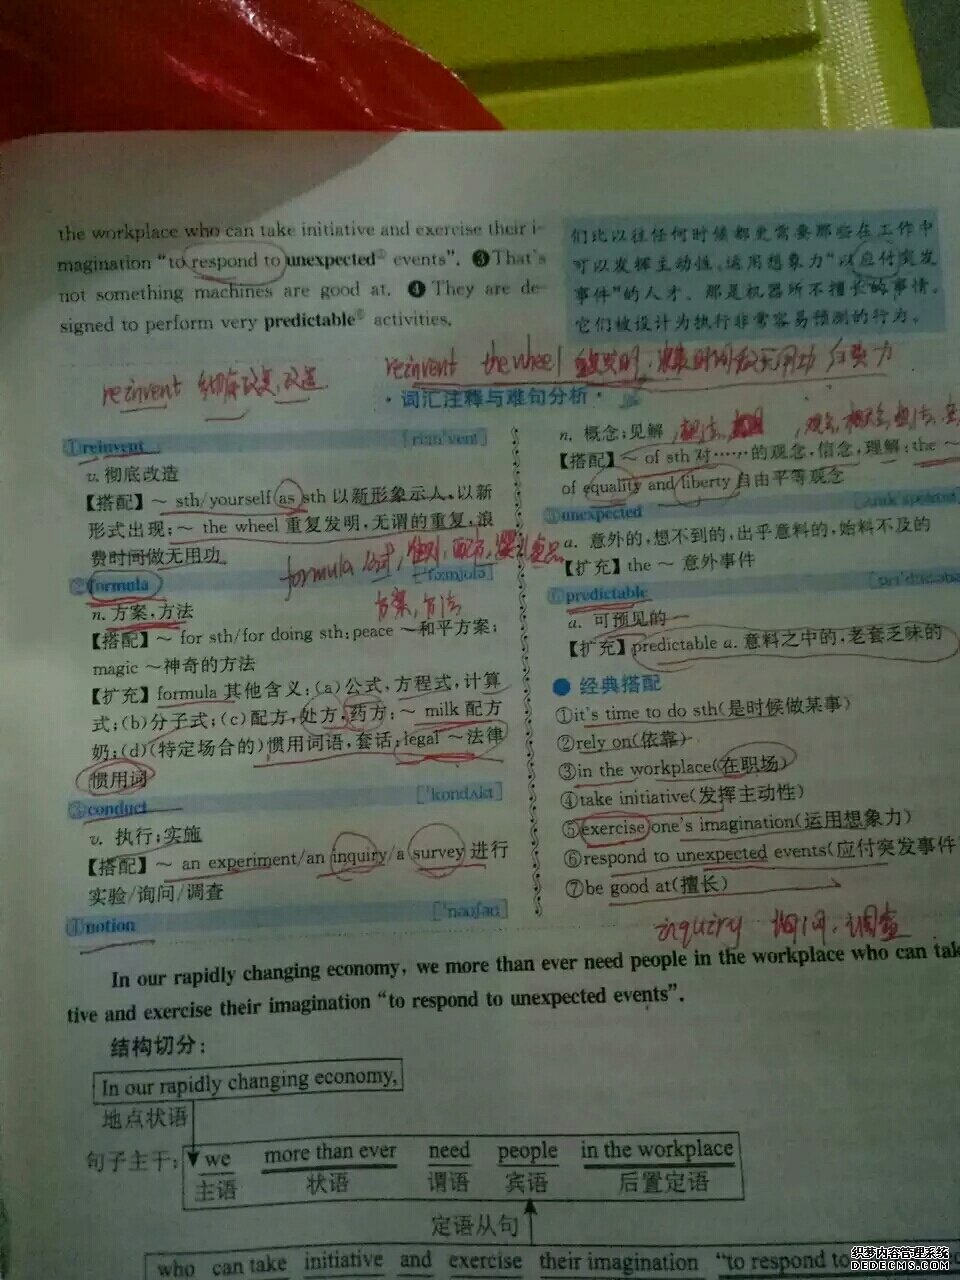 the workplace who can take initiative and exercise their i-
magination "to respond to unexpected⑤ events". ❸ That's
not something machines are good at. ❹ They are de-
signed to perform very predictable⑥ activities.
们比以往任何时候都更需要那些在工作中
可以发挥主动性、运用想象力“以应付突发
事件”的人才。那是机器所不擅长的事情。
它们被设计为执行非常容易预测的行为。
reinvent the wheel 重复发明, 浪费时间做无用功 白费力
reinvent 彻底改造, 改造
·词汇注释与难句分析·
①reinvent
v. 彻底改造
【搭配】~ sth/yourself as sth 以新形象示人,以新
形式出现;~ the wheel 重复发明,无谓的重复,浪
费时间做无用功
formula 公式, 准则, 配方,
②formula
方案, 方法
n. 方案,方法
【搭配】~ for sth/for doing sth;peace ~和平方案;
magic ~神奇的方法
【扩充】formula 其他含义:(a)公式,方程式,计算
式;(b)分子式;(c)配方,处方,药方:~ milk 配方
奶;(d)(特定场合的)惯用词语,套话:legal ~法律
惯用词
③conduct ['kɒndʌkt]
v. 执行;实施
【搭配】~ an experiment/an inquiry/a survey 进行
实验/询问/调查
④notion ['nəʊʃən]
n. 概念;见解
【搭配】~ of sth 对……的观念,信念,理解:the ~
of equality and liberty 自由平等观念
⑤unexpected
a. 意外的,想不到的,出乎意料的,始料不及的
【扩充】the ~ 意外事件
⑥predictable
a. 可预见的
【扩充】predictable a. 意料之中的,老套乏味的
● 经典搭配
①it's time to do sth(是时候做某事)
②rely on(依靠)
③in the workplace(在职场)
④take initiative(发挥主动性)
⑤exercise one's imagination(运用想象力)
⑥respond to unexpected events(应付突发事件
⑦be good at(擅长)
inquiry 询问, 调查
In our rapidly changing economy, we more than ever need people in the workplace who can tak
tive and exercise their imagination "to respond to unexpected events".
结构切分:
In our rapidly changing economy,
地点状语
句子主干: we more than ever need people in the workplace
主语 状语 谓语 宾语 后置定语
定语从句
who can take initiative and exercise their imagination "to respond to
织梦内容管理系统
DEDECMS.COM